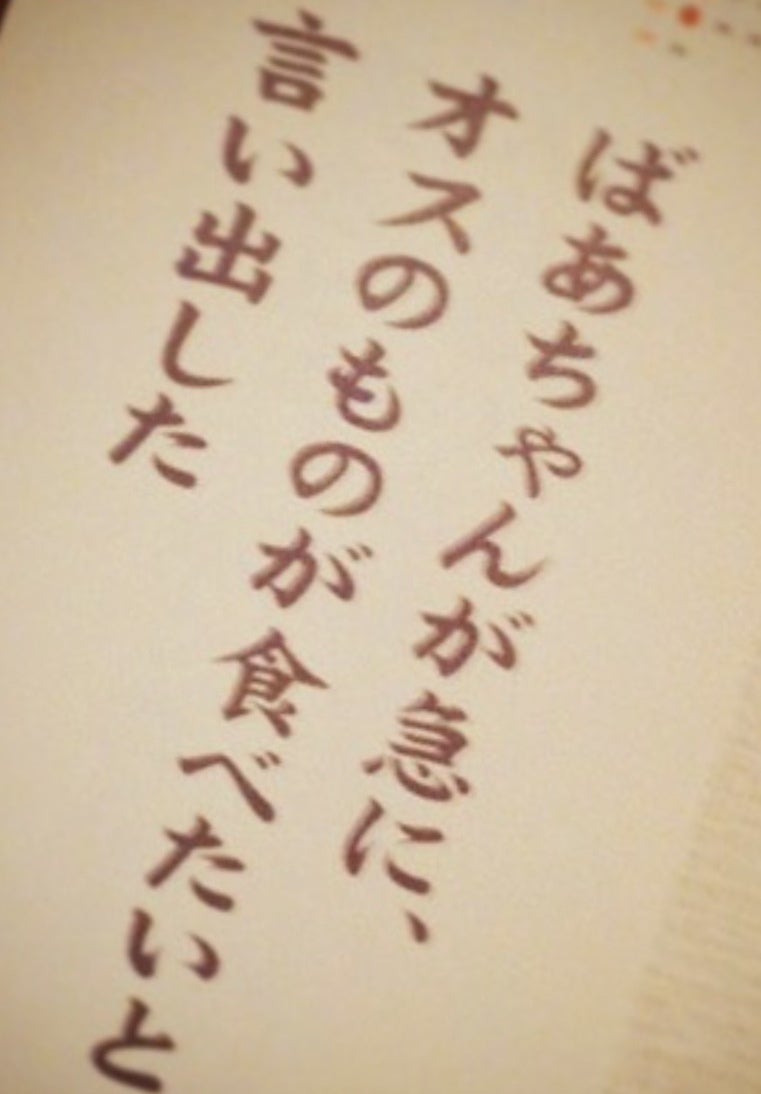 ばあちゃんが急に、
オスのものが食べたいと
言い出した